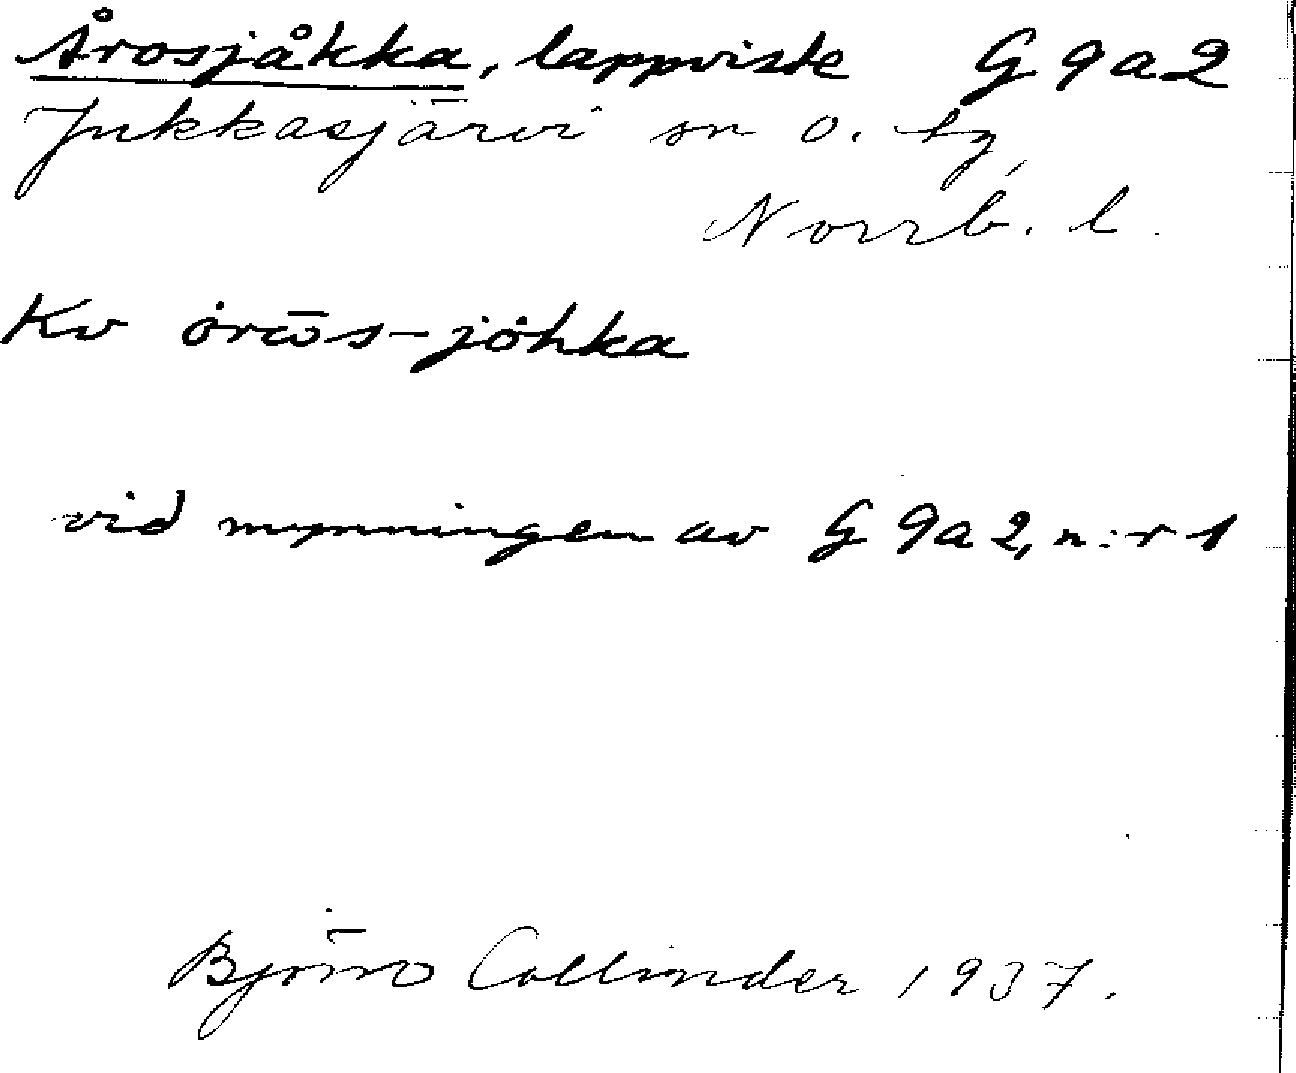 Årosjåkka, lappviste G 9 a 2
Jukkasjärvi sn o. tg,
Norrb. l.
Kv ȯrōs-jȯhka
vid mynningen av G 9 a 2, n:r 1
Björn Collinder 1937.